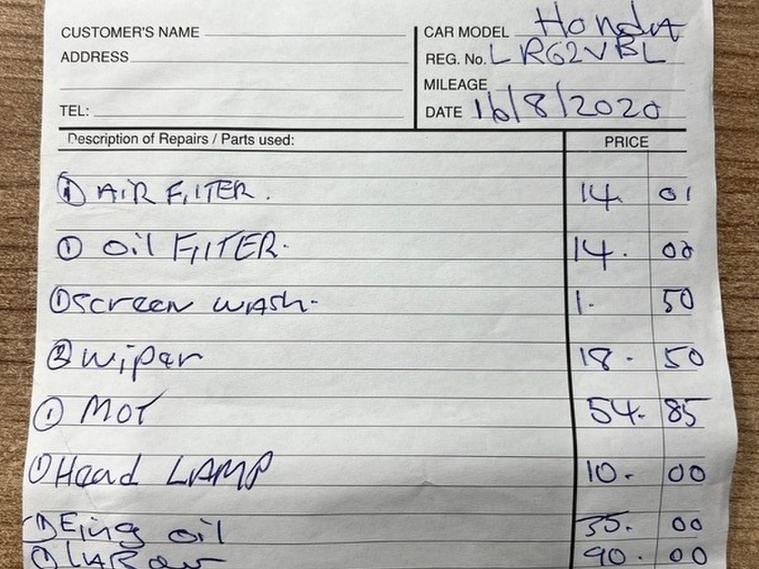 CUSTOMER'S NAME
ADDRESS
TEL:
CAR MODEL Honda
REG. No. LR62VBL
MILEAGE
DATE 16/8/2020
Description of Repairs / Parts used: PRICE
① AIR FILTER. 14. 01
① OIL FILTER. 14. 00
① Screen wash. 1. 50
② wiper 18. 50
① MOT 54. 85
① Head LAMP 10. 00
① Eing oil 35. 00
① LABour 90. 00